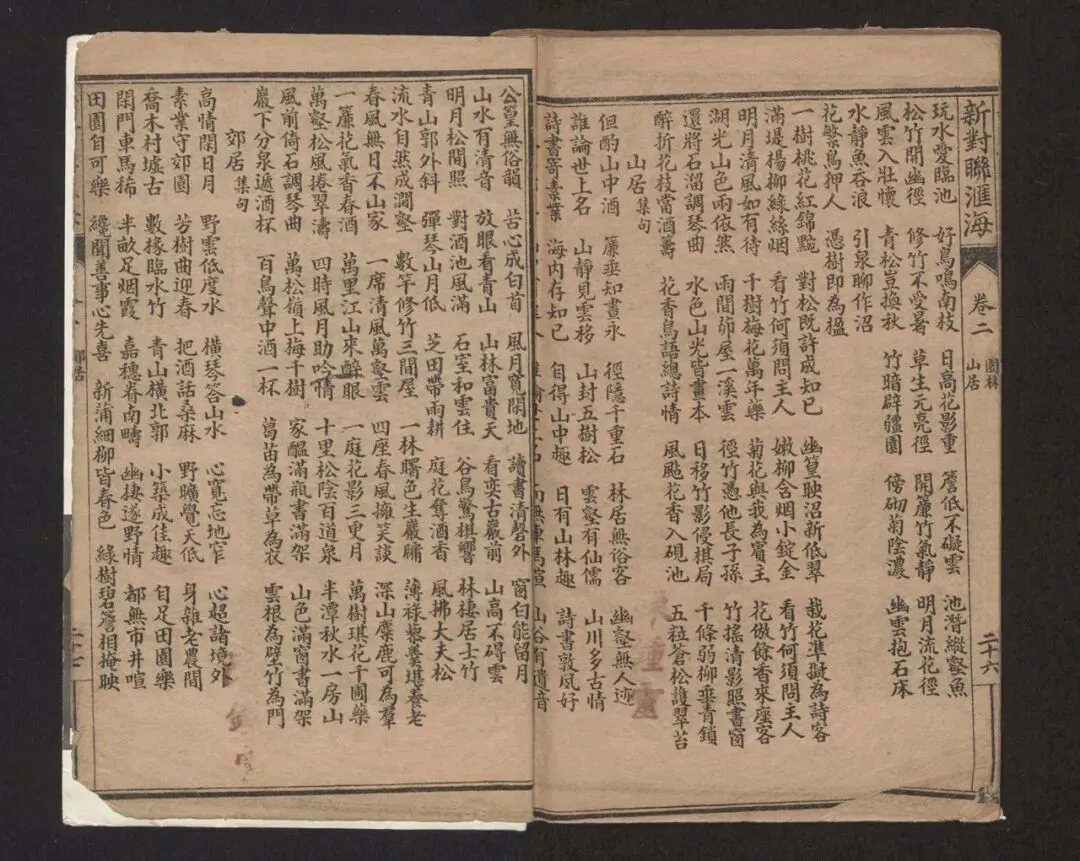 新對聯滙海 卷二 園林 山居 二十六
玩水愛臨池 好鳥鳴南枝 日高花影重 簷低不礙雲 池潛縱壑魚
松竹開幽徑 修竹不受暑 草生元亮徑 開簾竹氣靜 明月流花徑
風雲入壯懷 青松豈換秋 竹暗辟疆園 傍砌菊陰濃 幽雲抱石床
水靜魚吞浪 引泉聊作沼
花繁鳥押人 憑樹即為楹
一樹桃花紅錦㸃 對松既許成知已 幽篁映沼新低翠 栽花準擬為詩客
滿堤楊柳綠絲烟 看竹何須問主人 嫩柳含烟小錠金 看竹何須問主人
明月清風如有待 千樹梅花萬年藥 菊花與我為賓主 花倣餘香來座客
湖光山色雨依然 雨間茆屋一溪雲 徑竹憑他長子孫 竹搖清影照書窗
還將石溜調琴曲 水色山光皆畫本 日移竹影侵棋局 千條弱柳垂青鎖
醉折花枝當酒籌 花香鳥語總詩情 風颭花香入硯池 五粒蒼松護翠苔
山居 集句
但酌山中酒 簾垂知晝永 徑隱千重石 林居無俗客 幽壑無人迹
誰論世上名 山靜見雲移 山封五樹松 雲壑有仙儒 山川多古情
詩書寄素業 海內存知已 自得山中趣 日有山林趣 詩書敦夙好
山谷有遺音
公篁無俗韻 苦心成白首 風月寬閒地 讀書清磬外 窗白能留月
山水有清音 放眼看青山 山林富貴天 看奕古巖前 山高不碍雲
明月松間照 對酒池風滿 石室和雲住 谷鳥驚棋響 林棲居士竹
青山郭外斜 彈琴山月低 芝田帶雨耕 庭花奪酒香 風拂大夫松
流水自然成澗壑 數竿修竹三間屋 一林曙色生巖牖 薄祿藜羹堪養老
春風無日不山家 一席清風萬壑雲 四座春風擁笑談 深山麋鹿可為羣
一簾花氣香春酒 萬里江山來醉眼 一庭花影三更月 萬樹琪花千圃藥
萬壑松風捲翠濤 四時風月助吟情 十里松陰百道泉 半潭秋水一房山
風前倚石調琴曲 萬松嶺上梅千樹 家醞滿瓶書滿架 山色滿窗書滿架
巖下分泉遞酒杯 百鳥聲中酒一杯 葛苗為帶草為衣 雲根為壁竹為門
郊居 集句
高情閑日月 野雲低度水 橫琴答山水 心寬忘地窄 心超諸境外
素業守郊園 芳樹曲迎春 把酒話桑麻 野曠覺天低 身雜老農間
喬木村墟古 數椽臨水竹 青山橫北郭 小築成佳趣 自足田園樂
閑門車馬稀 半畝足烟霞 嘉穗眷南疇 幽棲遂野情 都無市井喧
田園自可樂 纔聞善事心先喜 新蒲細柳皆春色 綠樹碧簷相掩映
郊居 二十七